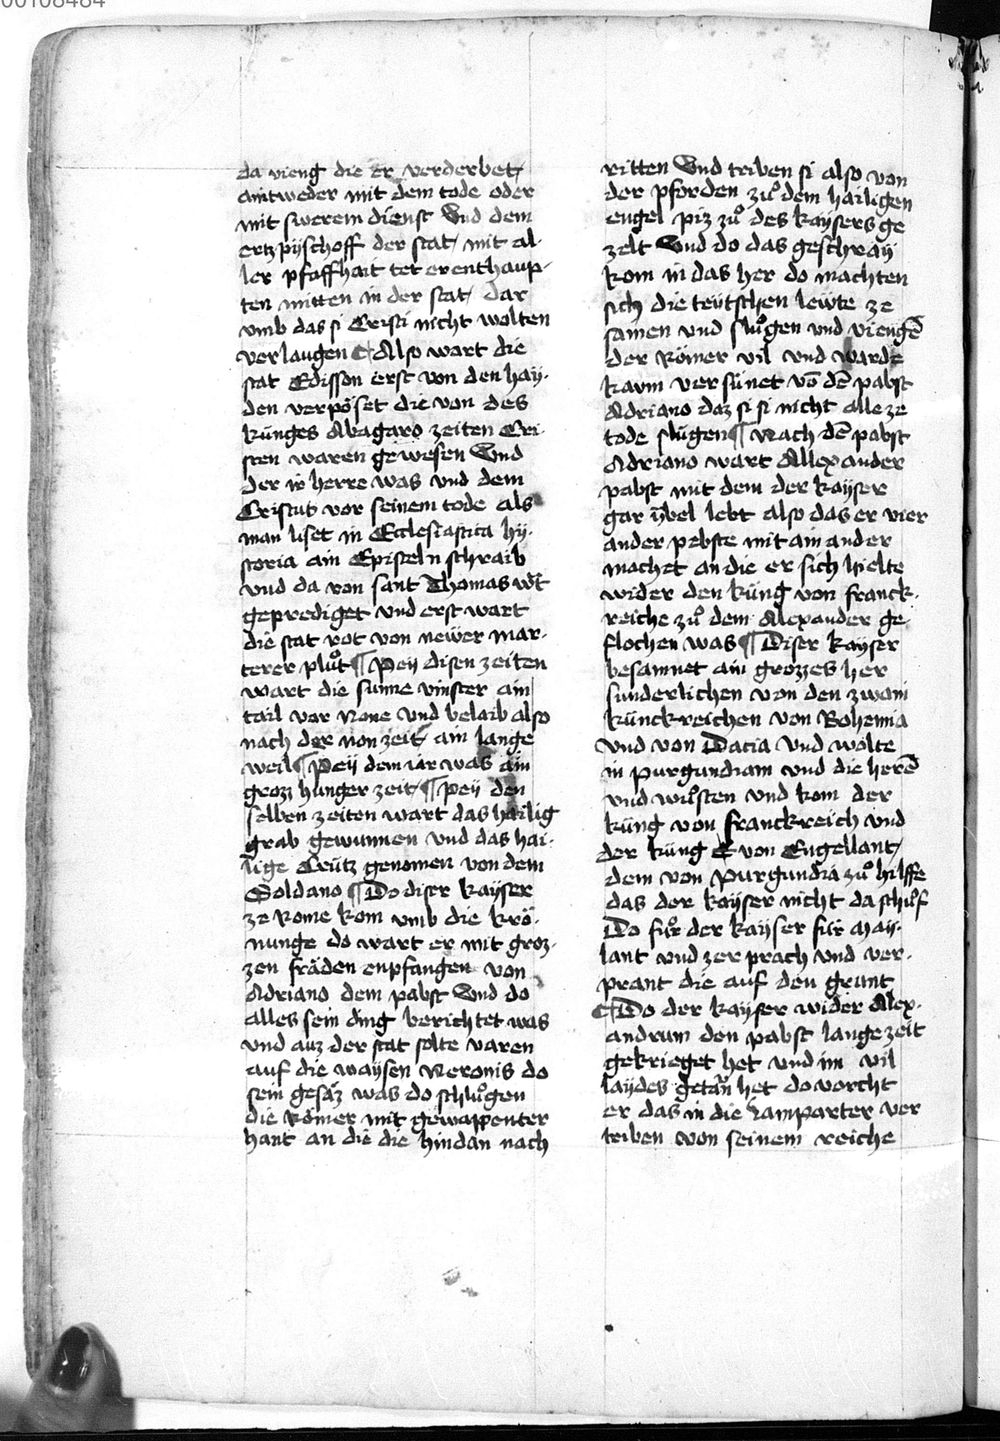 00108484
da vieng die er verderbet
aintweder mit dem tode oder
mit swerem dienst Vnd dem
ertzpyschoff der stat mit al-
ler pfaffhait tet er enthaup-
ten mitten in der stat dar
vmb das si Cristi nicht wolten
verlaugen ¶ Also wart die
stat Edisson erst von den hay-
den verpöset die von des
künges Abagaro zeiten Cri-
sten waren gewesen Vnd
der ir herre was vnd dem
Cristus vor seinem tode als
man liset in Ecclesiastica hy-
storia ain Episteln schraib
vnd da von sant Thomas wt
geprediget vnd erst wart
die stat rot von newer mar-
terer pluͦt ¶ Pey disen zeiten
wart die sunne vinster ain
tail vor None vnd belaib also
nach der non zeit ain lange
weil ¶ Pey dem iar was ain
grozz hunger zeit ¶ Pey den
selben zeiten wart das hailig
grab gewunnen vnd das hai-
lige Crütz genomen von dem
Soldano ¶ Do diser kayser
ze Rome kom vmb die krö-
nunge do wart er mit groz-
zen fräden enpfangen von
Adriano dem pabst Vnd do
alles sein ding berichtet was
vnd auz der stat solte varen
auf die waysen Neronis do
sein gesäz was do schluͦgen
die Römer mit gewappenter
hant an die die hindan nach
ritten Vnd triben si also von
der pforden zuͦ dem hailigen
engel piz zuͦ des kaysers ge
zelt Vnd do das geschray
kom in das her do machten
sich die teütschen lewte ze
samen vnd sluͦgen vnd viengē
der Römer vil vnd warde
kaum versünet vō dē pabst
Adriano daz si si nicht alle ze
tode slügen ¶ Nach dē pabst
Adriano wart Allexander
pabst mit dem der kayser
gar ybel lebt also das er vier
ander pebste mit ain ander
machet an die er sich hielte
wider den küng von franck-
reiche zuͦ dem Alexander ge-
flochen was ¶ Diser kayser
besamnet ain grozzes her
sunderlichen von den zwain
künckreichen von Bohemia
vnd von Dacia vnd wolte
in purgundiam vnd die herē
vnd wuͦsten vnd kom der
küng von franckreich vnd
der küng von Engellant
dem von Purgundia zuͦ hilffe
das der kayser nicht da schuͦf
Do fuͦr der kayser für May-
lant vnd zerprach vnd ver-
prant die auf den grunt
¶ Do der kayser wider Alex-
andrum den pabst lange zeit
gekrieget het vnd im vil
laydes getan het do vorcht
er das in die Lamparter ver
triben von seinem reiche